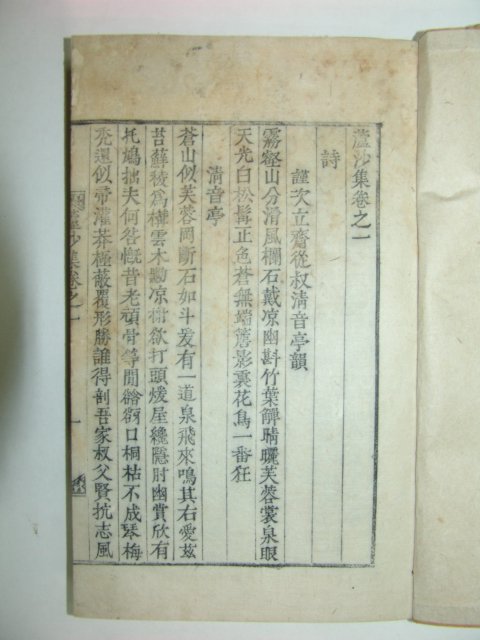 蘆沙集卷之一
詩
謹次立齋從叔清音亭韻
霧壑山分滑風欄石戴凉幽斟竹葉觶晴曬芙蓉裳泉眼
天光白松髯正色蒼無端簷影裏花鳥一番狂
清音亭
蒼山似芙蓉罔斷石如斗爰有一道泉飛來鳴其右愛玆
苔蘚稜爲構雲木勘凉榭欲打頭煖屋纔隱肘幽賞欣有
托鳩拙夫何咎慨昔老頑骨等閒繪口桐枯不成琴梅
禿還似帚灌莽極蔽覆形勝誰得剖吾家叔父賢抗志風
蘆沙集卷之一
一